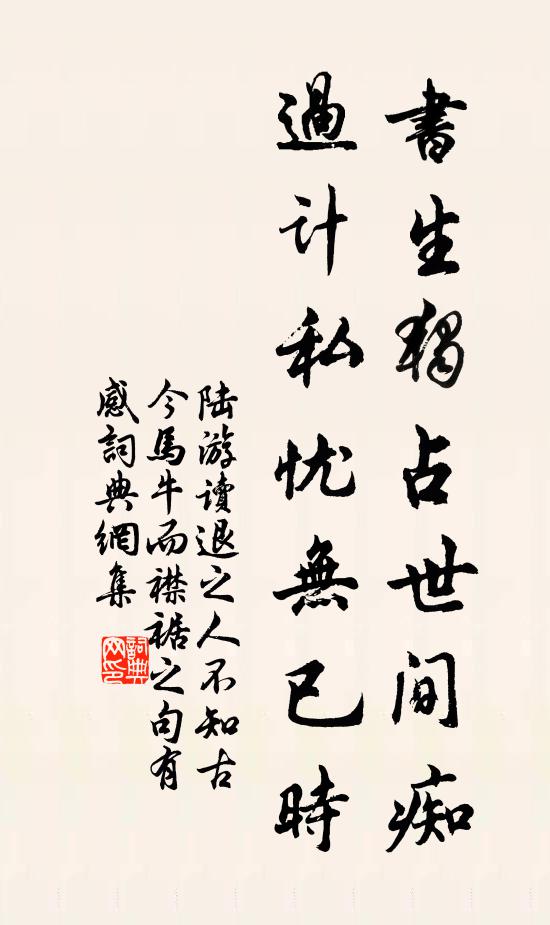 書生獨占世间痴
過计私忧無已時
陆游讀退之人不知古
今馬牛而襟裾之句有
感詞典網集
詞典
网印